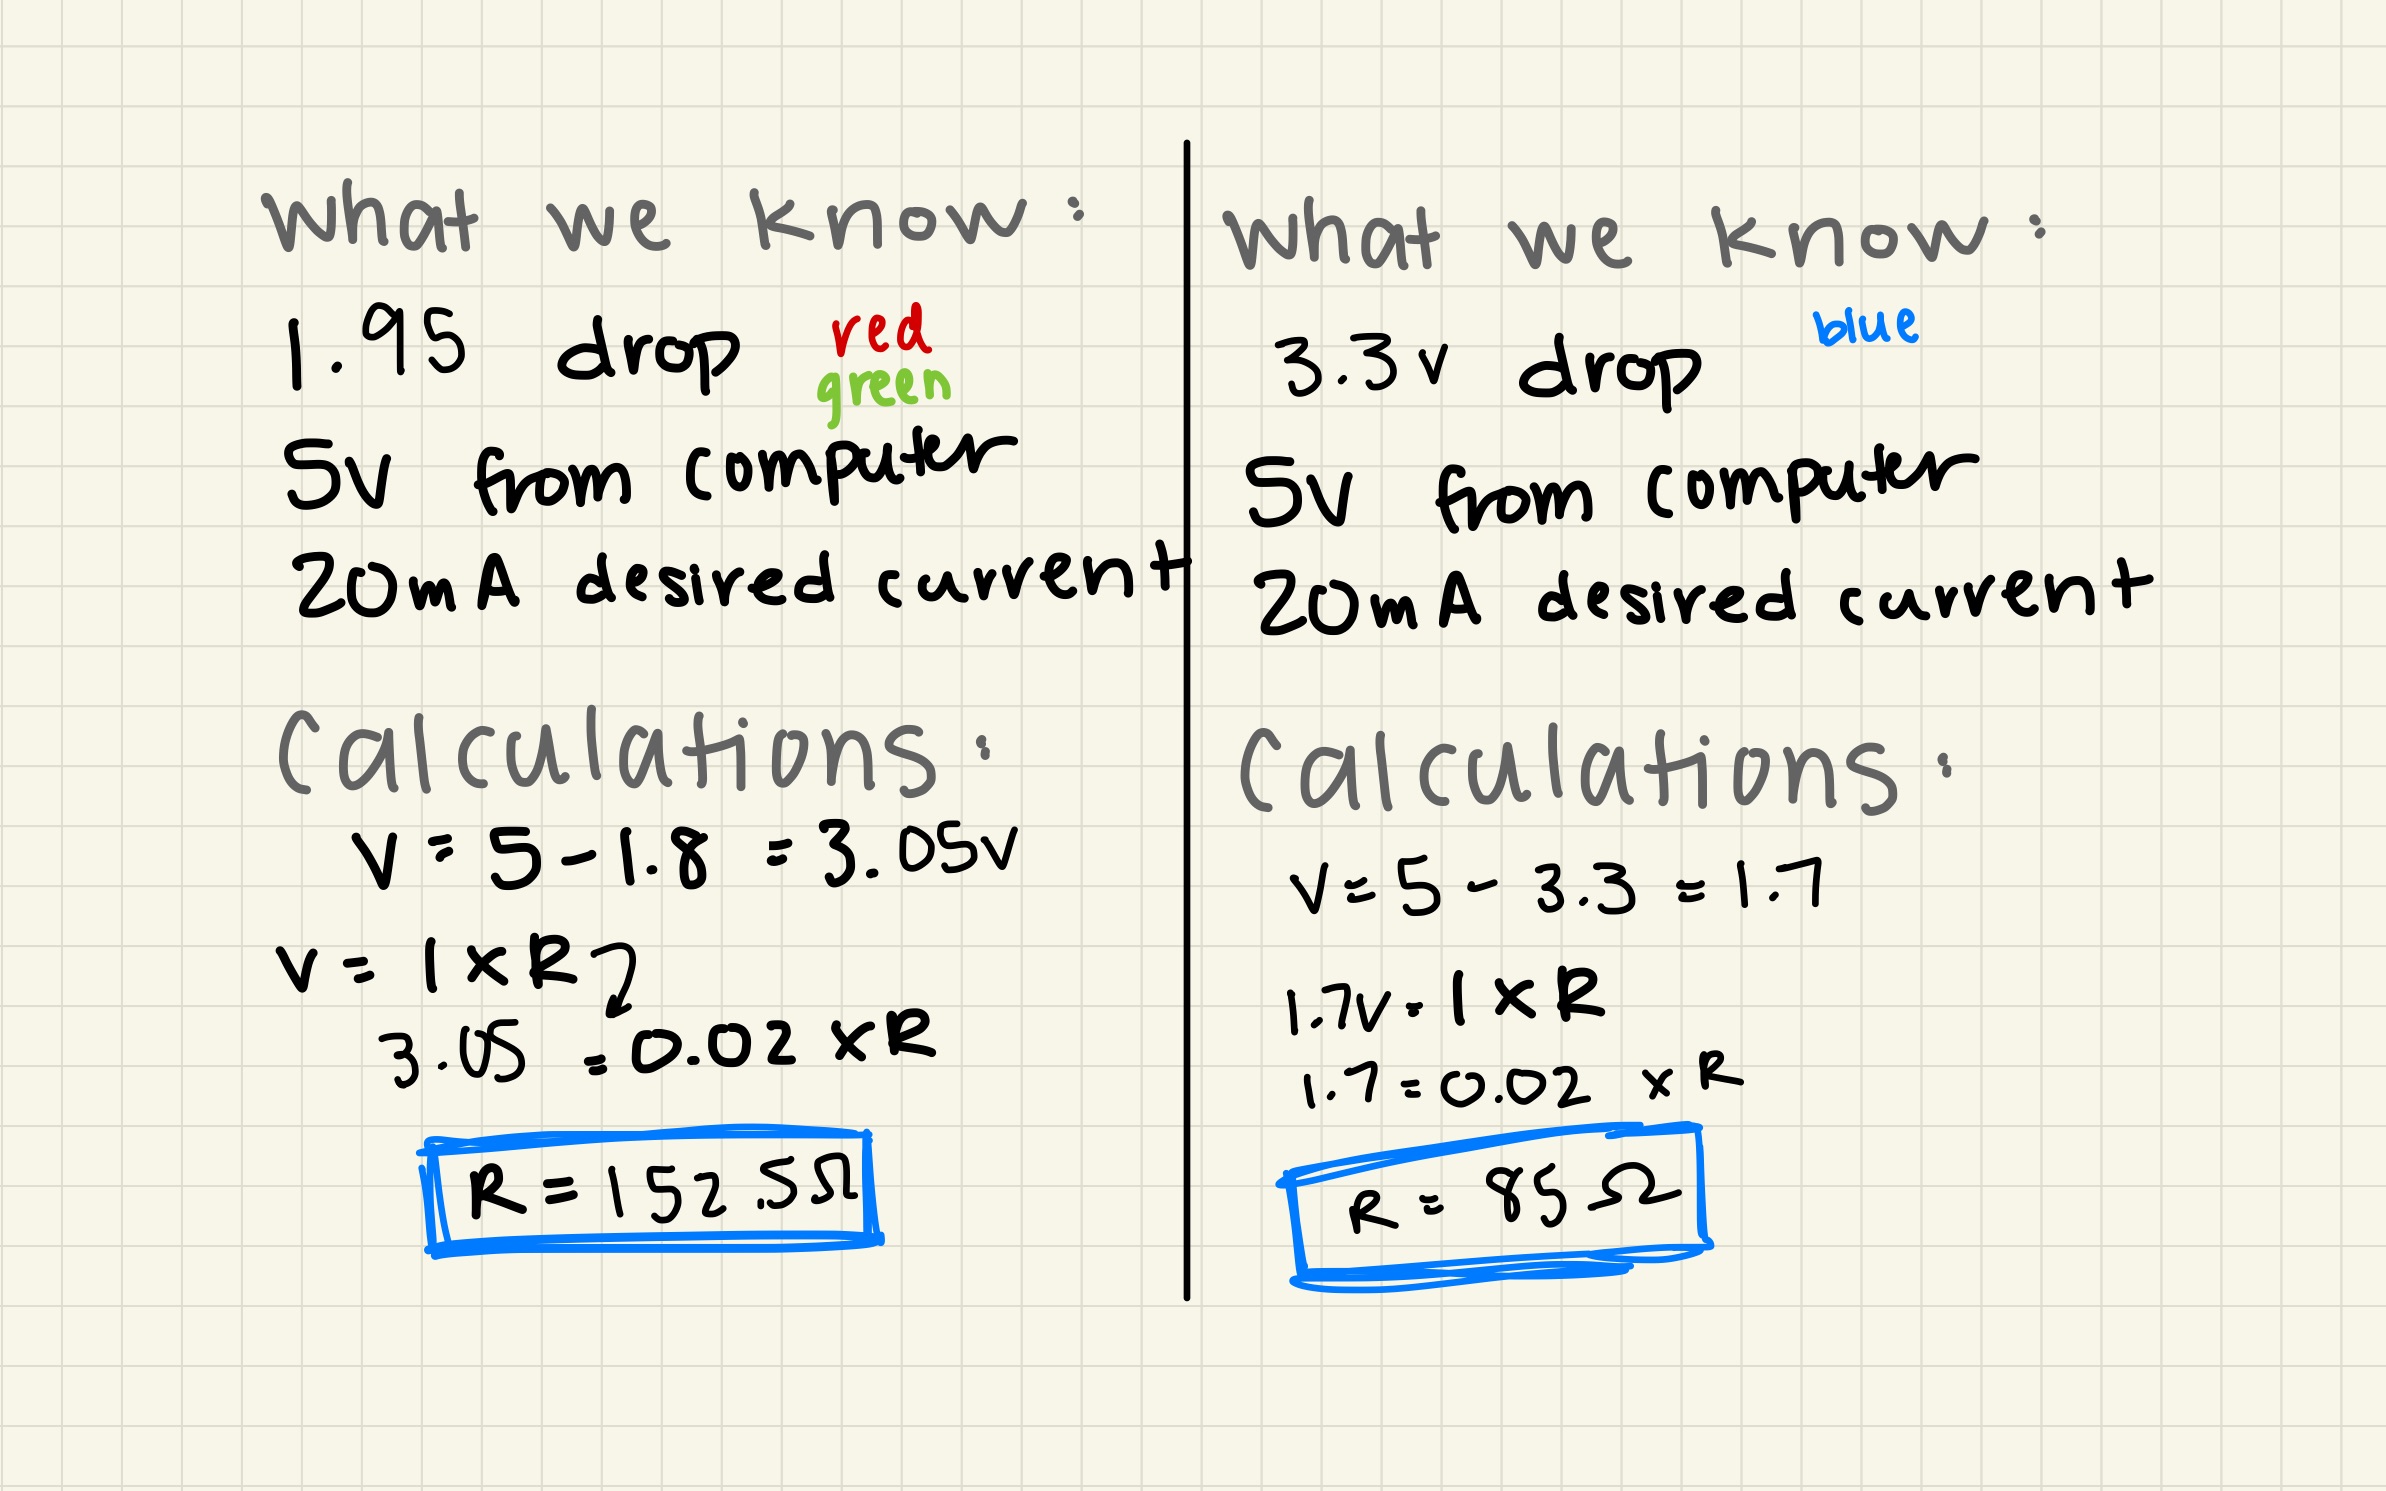 What we know:
1.95 drop red
green
5v from computer
20mA desired current
Calculations:
V = 5 - 1.8 = 3.05v
V = I x R
3.05 = 0.02 x R
R = 152.5Ω
What we know:
blue
3.3v drop
5v from computer
20mA desired current
Calculations:
V = 5 - 3.3 = 1.7
1.7v = I x R
1.7 = 0.02 x R
R = 85 Ω